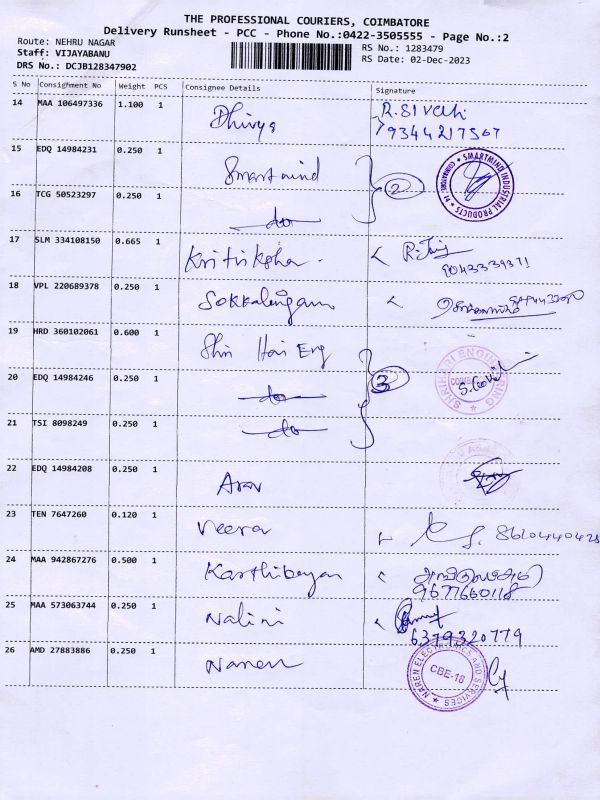 THE PROFESSIONAL COURIERS, COIMBATORE
Delivery Runsheet - PCC - Phone No.:0422-3505555 - Page No.:2
Route: NEHRU NAGAR
Staff: VIJAYABANU
DRS No.: DCJB128347902
RS No.: 1283479
RS Date: 02-Dec-2023
S No Consignment No Weight PCS Consignee Details Signature
14 MAA 106497336 1.100 1 Dhivya R.SIVaki
9344217567
15 EDQ 14984231 0.250 1 Smart mind 2 SMARTMIND INDUSTRIAL PRODUCTS COIMBATORE
16 TCG 50523297 0.250 1 do
17 SLM 334108150 0.665 1 Kritiksha
9043339371
18 VPL 220689378 0.250 1 Sokkalingam
19 HRD 360102061 0.600 1 Shri Hari Eng 3 SHRIHARI ENGINEERING
20 EDQ 14984246 0.250 1 do
21 TSI 8098249 0.250 1 do
22 EDQ 14984208 0.250 1 Arav
23 TEN 7647260 0.120 1 Veera
24 MAA 942867276 0.500 1 Karthikeyan
9677660118
25 MAA 573063744 0.250 1 Nalini
6379320779
26 AMD 27883886 0.250 1 Naren NAREN ELECTRONICS AND SERVICES CBE-18